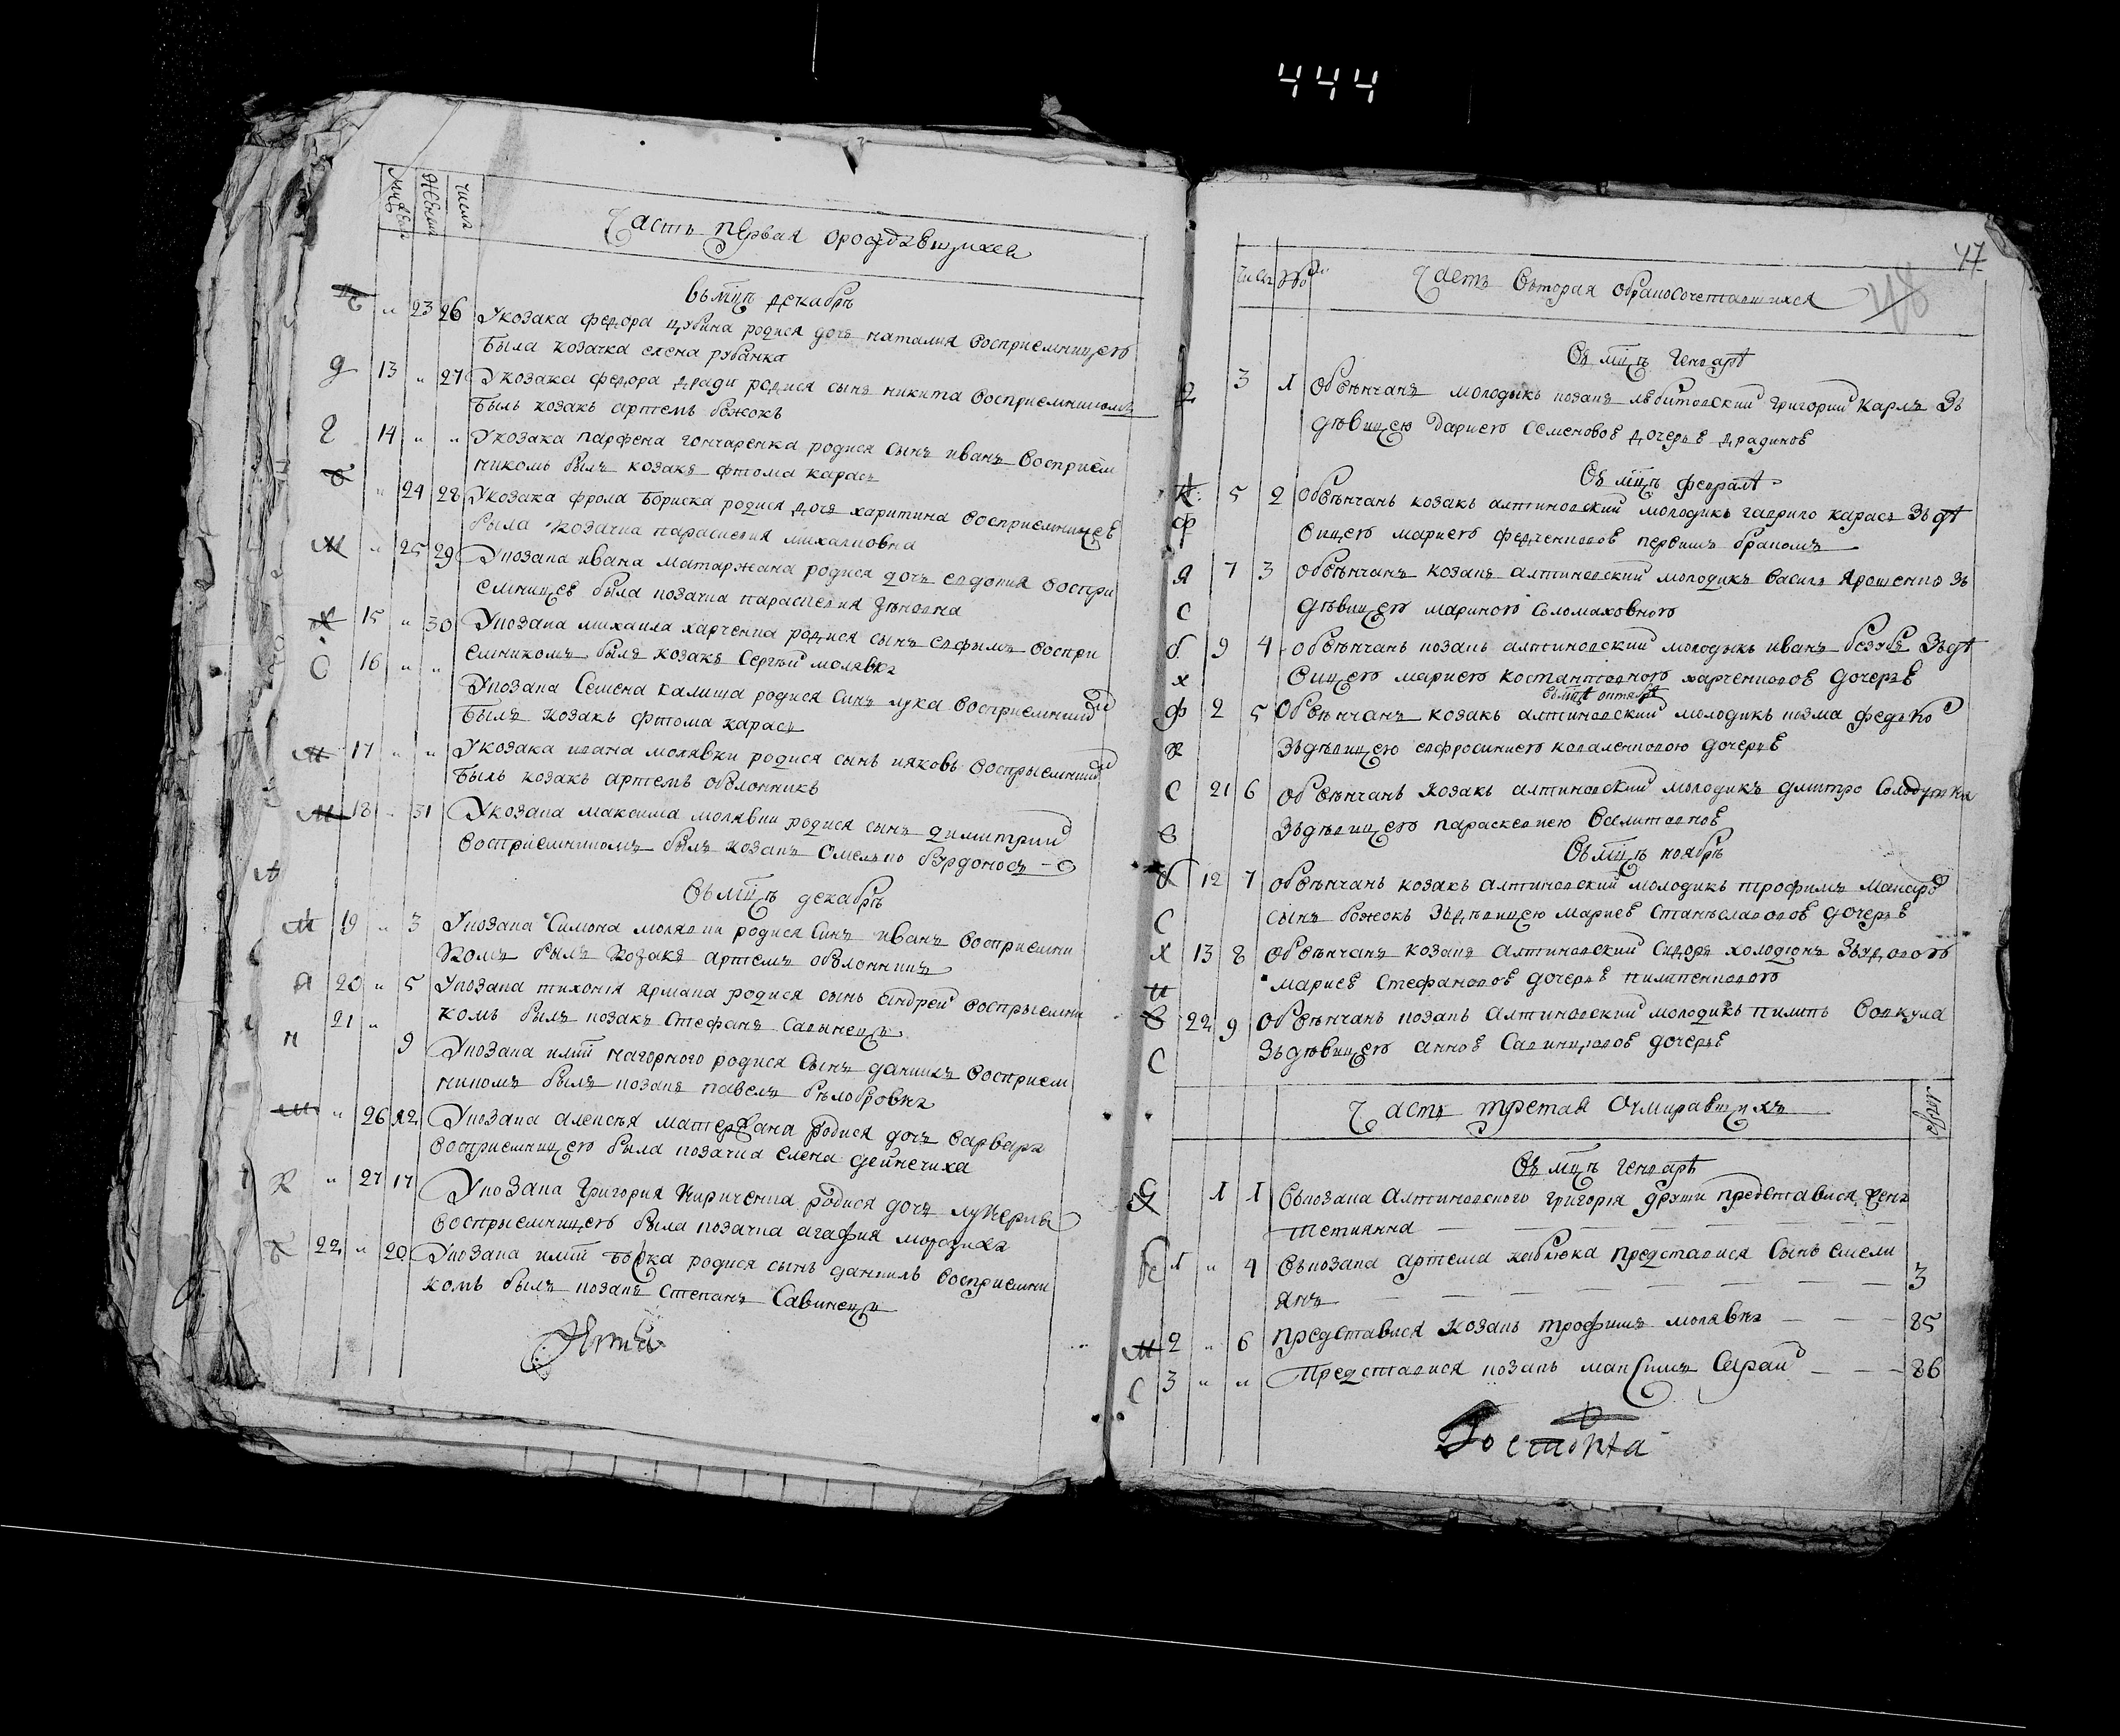 444
Мужеска
Женска
числа
Часть первая ороджаваущихся
въ мцъ декабрѣ
ц " 23 26 У козака федора цубина родися дочь наталия восприемницею
была козачка елена рубанка
д 13 " 27 У козака федора дради родися сынъ никита восприемникомъ
былъ козакъ артемъ божокъ
г 14 " " У козака парфена гончаренка родися сынъ иванъ восприем
никомъ былъ козакъ фтома карась
б " 24 28 У козака фрола бориска родися дочь харитина восприемницеѣ
была козачка параскевия михаиловна
м " 25 29 У козака ивана матаржана родися дочь евдокия воспри
емницеѣ была козачка параскевия
х 15 " 30 У козака михаила харченка родися сынъ евфымъ воспри
емникомъ былъ козакъ Сергѣй молявка
С 16 " " У козака Семена калиша родися Синъ лука восприемникомъ
былъ козакъ фтома карась
м 17 " " У козака ивана молявки родися сынъ ияковъ восприемникомъ
былъ козакъ артемъ оболонникъ
м 18 " 31 У козака максима молявки родися сынъ димитрий
восприемникомъ былъ козакъ Омелько бурдоносъ
Въ мцъ декабрѣ
м 19 " 3 У козака Симона молявки родися Синъ иванъ восприемни
комъ былъ козакъ артемъ оболонникъ
я 20 " 5 У козака тихония ярмака родися сынъ андрей восприемни
комъ былъ козакъ Стефанъ Савынецъ
н 21 " 9 У козака илии нагорного родися Сынъ даниилъ восприем
никомъ былъ козакъ павелъ бѣлобровка
м " 26 12 У козака алексѣя матержана родися дочь варвара
восприемницею была козачка елена дейнечиха
к " 27 17 У козака григория Кириченка родися дочь лукерия
восприемницею была козачка агафия морозиха
б 22 " 20 У козака илии борка родися сынъ даниилъ восприемни
комъ былъ козакъ степанъ Савинецъ
47
48
числа
Часть вторая обракосочетавшихся
Въ мцъ генварѣ
3 1 Обвѣнчанъ молодыкъ козакъ григорий Карлъ Зъ
дѣвицею дариею Семеновоѣ дочерьѣ драдиноѣ
Въ мцъ февралѣ
К 5 2 Обвѣнчанъ козакъ алтиновский молодикъ гаврило карась Зъ дѣ
ф вицею мариею федченковоѣ первимъ бракомъ
Я 7 3 Обвѣнчанъ козакъ алтиновский молодикъ василь Ярошенко Зъ
С дѣвицею мариною Соломаховною
б 9 4 Обвѣнчанъ козакъ алтиновский молодыкъ иванъ беззубъ Зъ дѣ
х вицею мариею костантѣвною харченковоѣ дочерьѣ
въ мцѣ октябрѣ
ф 2 5 Обвѣнчанъ козакъ алтиновский молодикъ козма федько
к Зъ дѣвицею евфросиниею коваленковою дочерьѣ
С 21 6 Обвѣнчанъ козакъ алтиновский молодикъ дмитро Солодушка
в Зъ дѣвицею параскевиею
Въ мцъ ноябрѣ
б 12 7 Обвѣнчанъ козакъ алтиновский молодикъ трофимъ макаро
С сынъ божокъ Зъ дѣвицею мариеѣ Станѣславовоѣ дочерьѣ
х 13 8 Обвѣнчанъ козакъ алтиновский Сидоръ холодюнъ Зъ удовою
п мариеѣ Стефановоѣ дочерьѣ пилипенковою
в 22 9 Обвѣнчанъ козакъ алтиновский молодикъ пилипъ вовкула
С Зъ дѣвицею анноѣ Савинцовоѣ дочерьѣ
Часть третая Оумиравшихъ
Въ мцъ генварѣ
1 1 Въ козака алтиновского григория драги представися жена
тетиянна
1 " 4 Въ козака артема каблюка представися Сынъ емели
янъ 3
м 2 " 6 представися козакъ трофимъ молявка 85
С 3 " " Представися козакъ максимъ Сирай 86